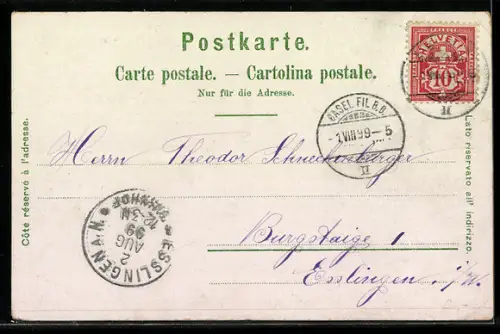 Postkarte.
Carte postale. — Cartolina postale.
Nur für die Adresse.
HELVETIA
10
BASEL FIL. B.B.
1.VIII.99 – 5
II
Côté réservé à l'adresse.
Lato riservato all' indirizzo.
Herrn Theodor Schneckenburger
Burgstaige 1
Esslingen i/W.
ESSLINGEN A.N.
2
AUG
99
12-3N
BAHNHOF
II